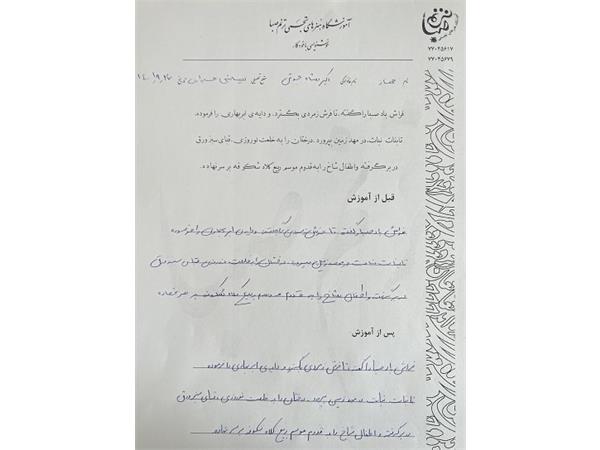 آموزشگاه هنرهای تجسمی ترنم صبا
خوشنویسی با خودکار
۷۷۰۲۵۶۱۷
۷۷۰۲۵۶۷۹
نام نام خانوادگی
فراش باد صبا را گفته، تا فرش زمردی بگسترد، و دایه‌ی ابر بهاری را فرموده،
تا بنات نبات، در مهد زمین بپرورد، درختان را به خلعت نوروزی، قبای سبز ورق
در بر گرفته و اطفال شاخ را به قدوم موسم ربیع کلاه شکوفه بر سر نهاده.
قبل از آموزش
فراش باد صبا را گفته تا فرش زمردی بگسترد و دایه‌ی ابر بهاری را فرموده
تا بنات نبات در مهد زمین بپرورد درختان را به خلعت نوروزی قبای سبز ورق
در بر گرفته و اطفال شاخ را به قدوم موسم ربیع کلاه شکوفه بر سر نهاده
پس از آموزش
فراش باد صبا را گفته تا فرش زمردی بگسترد و دایه‌ی ابر بهاری را فرموده
تا بنات نبات در مهد زمین بپرورد درختان را به خلعت نوروزی قبای سبز ورق
در بر گرفته و اطفال شاخ را به قدوم موسم ربیع کلاه شکوفه بر سر نهاده